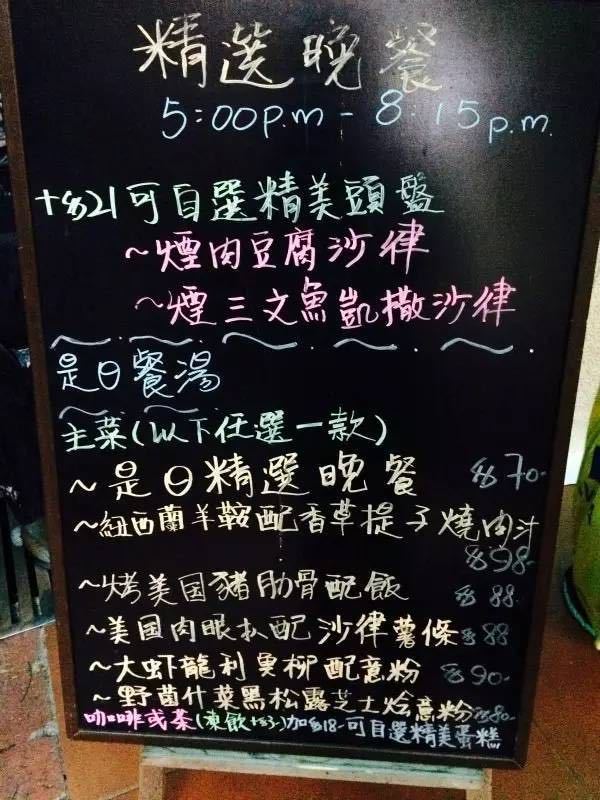 精選晚餐
5:00p.m - 8:15p.m.
+$21可自選精美頭盤
~煙肉豆腐沙律
~煙三文魚凱撒沙律
是日餐湯
主菜(以下任選一款)
~是日精選晚餐 $70-
~紐西蘭羊鞍配香草提子燒肉汁
$98-
~烤美国豬肋骨配飯 $88-
~美国肉眼扒配沙律薯條 $88
~大虾龍利魚柳配意粉 $90-
~野菌什菜黑松露芝士烩意粉 $80-
咖啡或茶(凍飲+$3-)加$18-可自選精美蛋糕